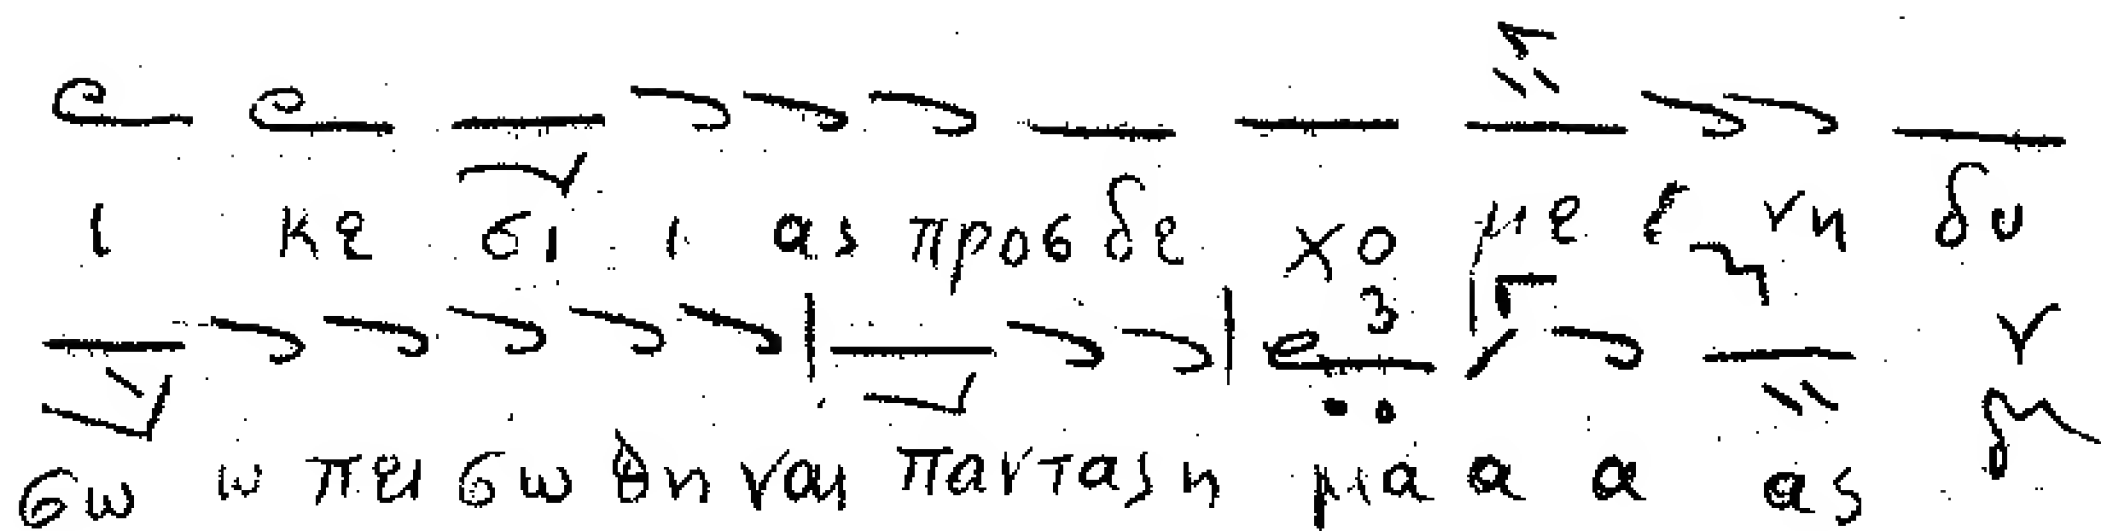 ι κε σι ι ας προσ δε χο με ε νη δυ
σω ω πει σω θη ναι παντας η μα α α ας